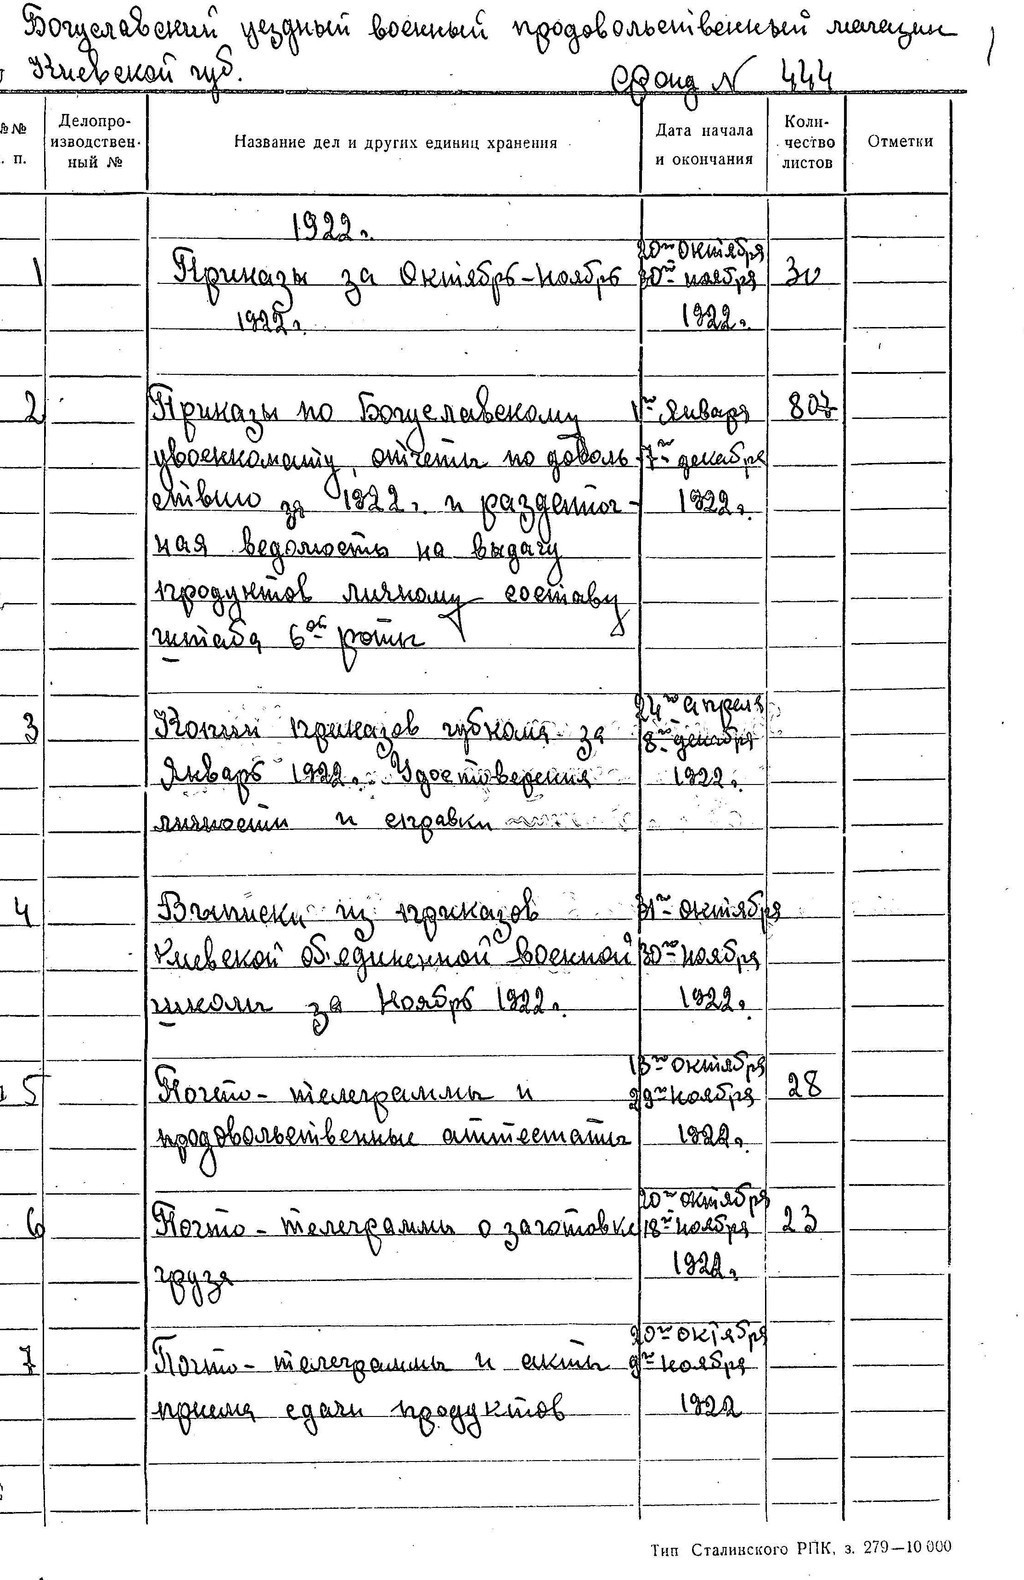 Богуславский уездный военный продовольственный магазин
Киевской губ.
Фонд N 444
№№ . п.
Делопро-изводствен-ный №
Название дел и других единиц хранения
Дата начала и окончания
Коли-чество листов
Отметки
1922г.
20го октября
1 Приказы за Октябрь-Ноябрь 30го ноября 30
1922г. 1922г.
2 Приказы по Богуславскому 1го января
увоенкомату, отчеты по доволь 7го декабря
ствию за 1922г. и раздаточ- 1922г.
ная ведомость на выдачу
продуктов личному составу
штаба 6ой роты
24го апреля
3 Копии приказов губкома за 8го декабря
Январь 1922г. Удостоверения 1922г.
личности и справки
4 Выписки из приказов 31го октября
Киевской об'единенной военной 30го ноября
школы за Ноябрь 1922г. 1922г.
13го октября
5 Почто-телеграммы и 29го ноября 28
продовольственные аттестаты 1922г.
20го октября
6 Почто-телеграммы о заготовке 18го ноября 23
груза 1922г.
20го октября
7 Почто-телеграммы и акты 9го ноября
приема сдачи продуктов 1922
Тип Сталинского РПК, з. 279—10 000